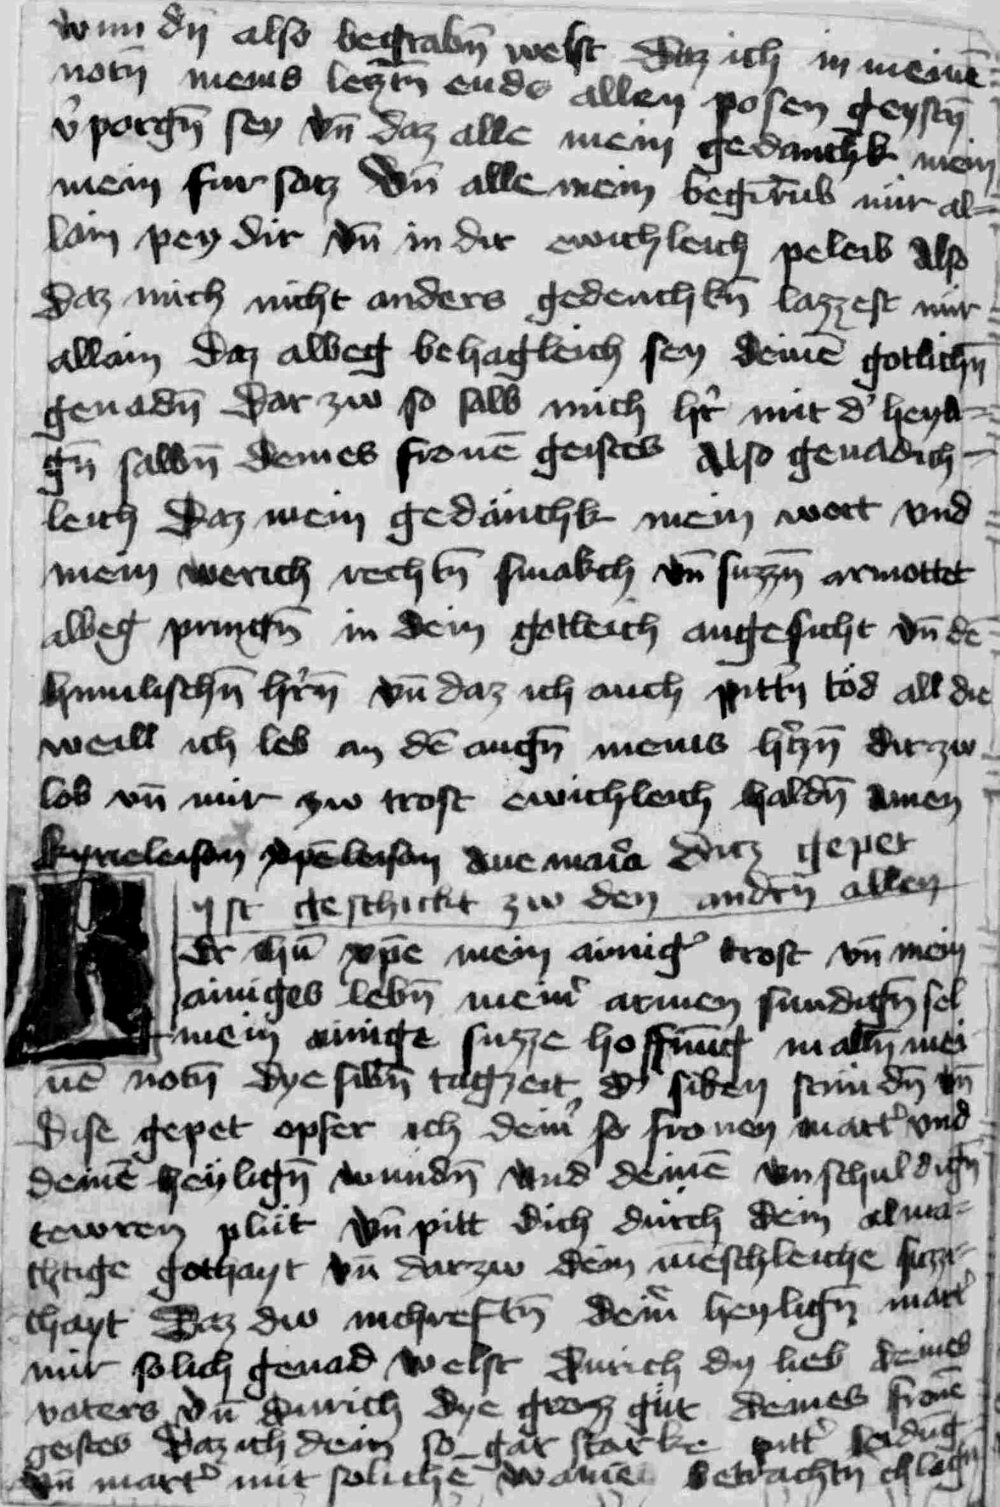 wundn̄ also begrabn̄ welst Daz ich in meinē
notn̄ meins leztn̄ ends allen posen geystn̄
v̓porgn̄ sey vn̄ daz alle mein gedanchk mein
mein fursatz vn̄ alle mein begirus mir al=
lain pey dir vn̄ in dir ewichleich peleib Also
Daz mich nicht anders gedenchkn̄ lazzest nur
allain Daz albeg behagleich sey deinē gotlichn̄
genadn̄ Dar zw so salb mich hr̄ mit d̓ heyli=
gn̄ salbn̄ deines fronē geistes Also genadich=
leich Daz mein gedänchk mein wort vnd
mein werich rechtn̄ smakch vn̄ suzzn̄ armottet
albeg pringn̄ in dein gotleich angesicht vn̄ dē
himlischn̄ hr̄n̄ vn̄ daz ich auch pittn̓ töd all die
weill ich leb an dē augn̄ meins hr̄zn̄ dir zw
lob vn̄ mir zw trost ewichleich haldn̄ Amen
kyrieleison xp̄eleison Aue maria Ditz gepet
yst geschickt zw den andrn̄ allen
Hr̄ ihū xp̄e mein ainig̓ trost vn̄ mein
ainiges lebn̄ mein̓ armen sundign̄ sel
mein ainige suzze hoffnūg in alln̄ mei
nē notn̄ Dye sibn̄ tagzeit d̓ siben stundn̄ vn̄
Dise gepet opfer ich dein̓ so fronen mart̓ vnd
deinē heylign̄ wundn̄ vnd deinē vnschuldign̄
tewren plüt vn̄ pitt dich dürch dein alma=
chtige gothayt vn̄ darzw dein mēschleiche
chayt Daz dw inchreftn̄ dein̓ heylign̄ mart̓
mir solich genad welst Durich dy lieb deines
vaters vn̄ Durich dye groz güt deines fronē
geistes Daz ich dein so gar starke pitt̓ leidūg
vn̄ mart̓ mit solichē betrachtn̄ chlagn̄